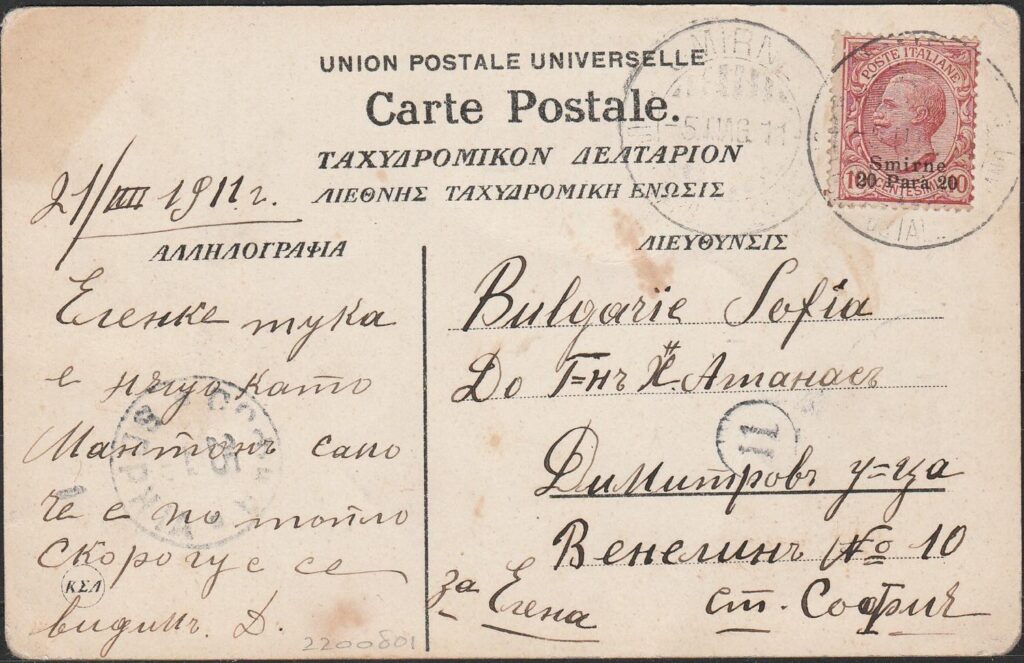 UNION POSTALE UNIVERSELLE
Carte Postale.
ΤΑΧΥΔΡΟΜΙΚΟΝ ΔΕΛΤΑΡΙΟΝ
ΔΙΕΘΝΗΣ ΤΑΧΥΔΡΟΜΙΚΗ ΕΝΩΣΙΣ
SMIRNE
POSTE ITALIANE
Smirne
20 Para 20
21/III 1911 г.
ΑΛΛΗΛΟΓΡΑΦΙΑ
ΔΙΕΥΘΥΝΣΙΣ
Еленке тука
е като
Мантонъ само
че е по топло
Скоро се
видимъ. Д.
ΚΣΛ
2200801
Bulgarie Sofia
До Г-нъ Х. Атанасъ
11
Димитровъ у-ца
Венелинъ № 10
за Елена
ст. София